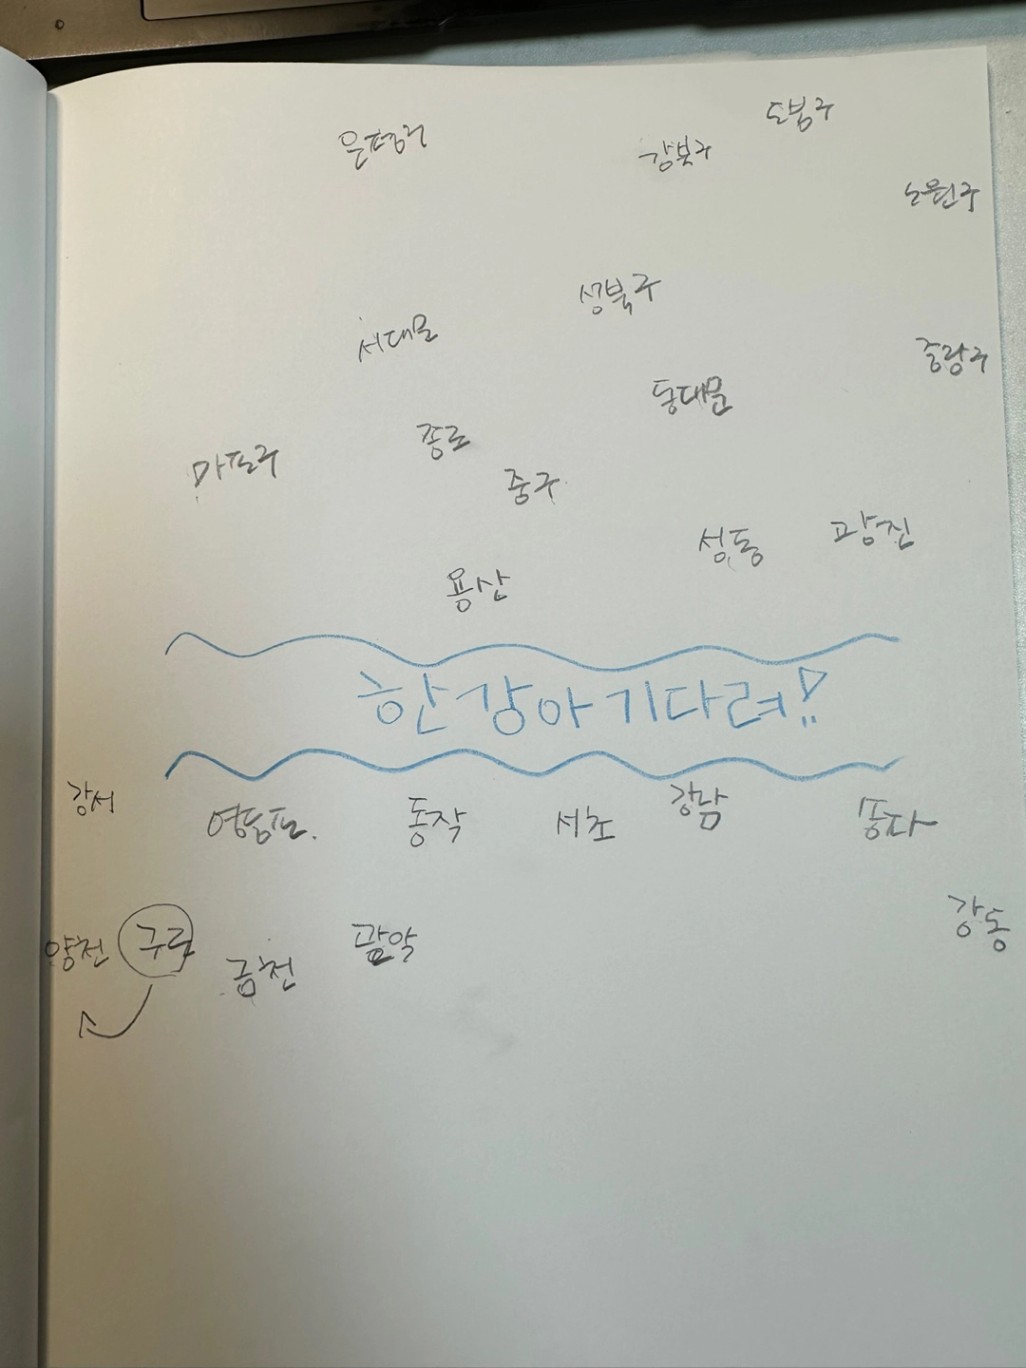 도봉구
은평구
강북구
노원구
성북구
서대문
중랑구
동대문
종로
마포구
중구
성동
광진
용산
한강아 기다려!!
강서
영등포.
동작
서초
강남
송파
양천
구로
금천
관악
강동